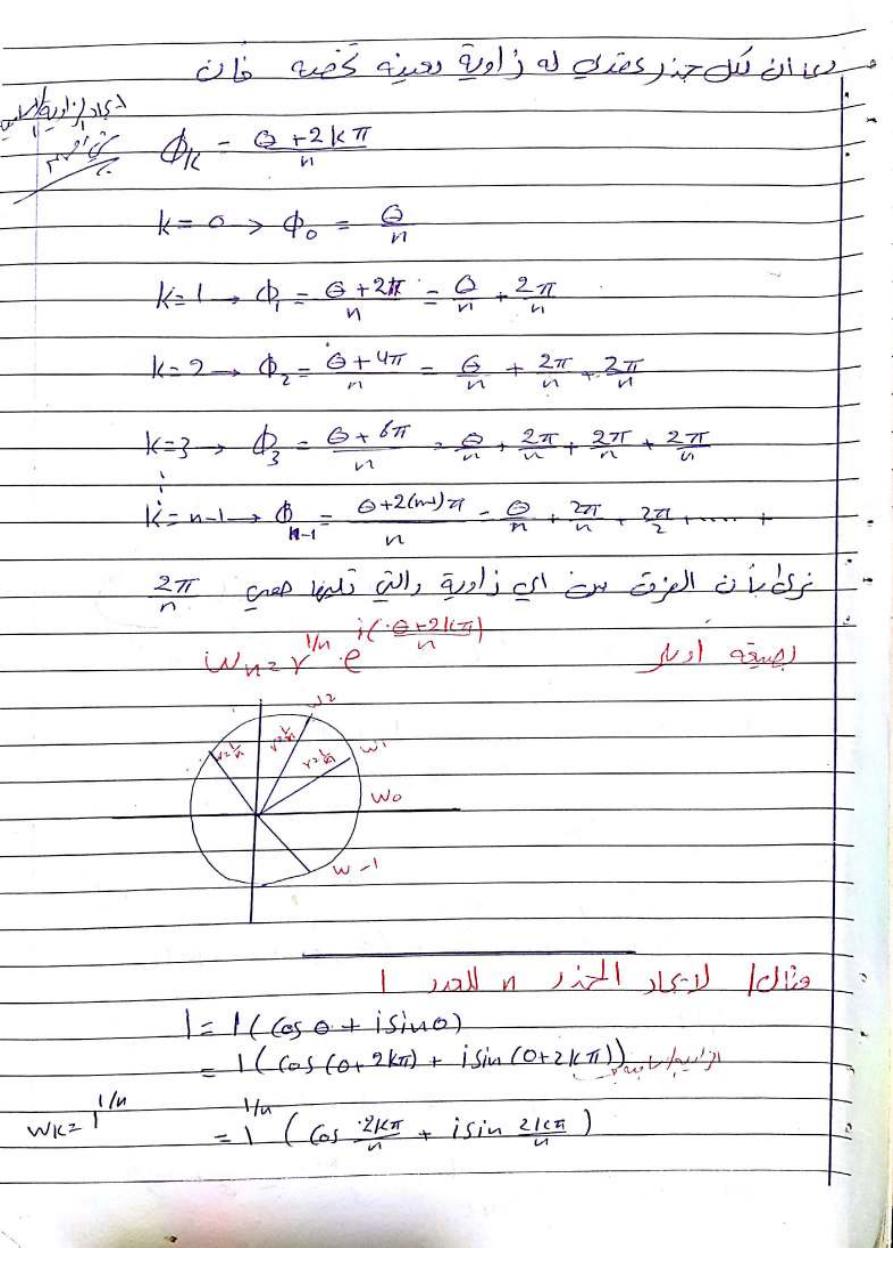 بما ان لكل جذر عقدي له زاوية معينه تخصه فان
ايجاد الزاوية
Φk = θ+2kπ/n
k=0 → Φ0 = θ/n
k=1 → Φ1 = θ+2π/n = θ/n + 2π/n
k=2 → Φ2 = θ+4π/n = θ/n + 2π/n + 2π/n
k=3 → Φ3 = θ+6π/n = θ/n + 2π/n + 2π/n + 2π/n
⋮
k=n-1 → Φn-1 = θ+2(n-1)π/n = θ/n + 2π/n + 2π/2 + ..... +
نرى بأن الفرق بين اي زاوية والتي تليها هي 2π/n
بصيغه اويلر wn = r^1/n e^i(θ+2kπ/n)
w2
r=1/n
r=1/n
r=1/n
w1
w0
w-1
مثال/ لايجاد الجذر n للعدد 1
1 = 1(cos θ + i sin θ)
= 1(cos(0+2kπ) + i sin(0+2kπ))
wk = 1^1/n = 1^1/n (cos 2kπ/n + i sin 2kπ/n)